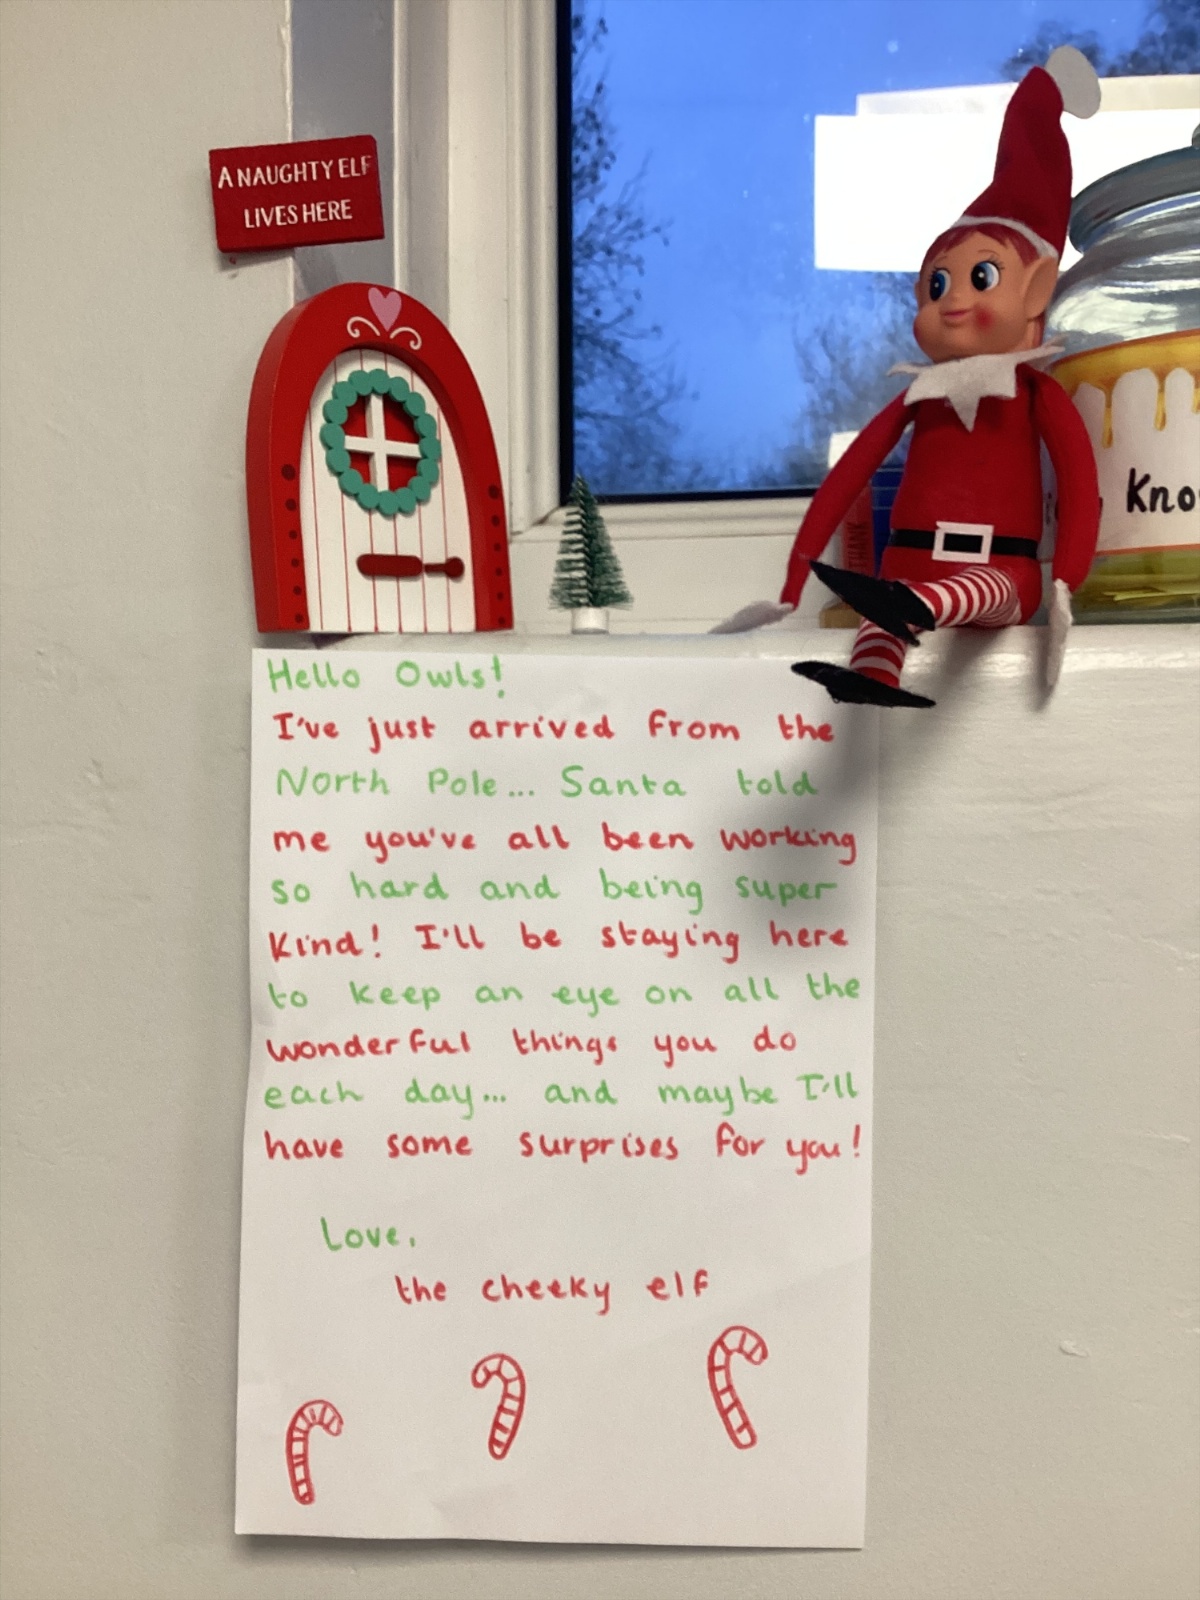 A NAUGHTY ELF
LIVES HERE
THANK
Hello Owls!
I've just arrived from the
North Pole... Santa told
me you've all been working
so hard and being super
Kind! I'll be staying here
to keep an eye on all the
wonderful things you do
each day... and maybe I'll
have some surprises for you!
Love,
the cheeky elf